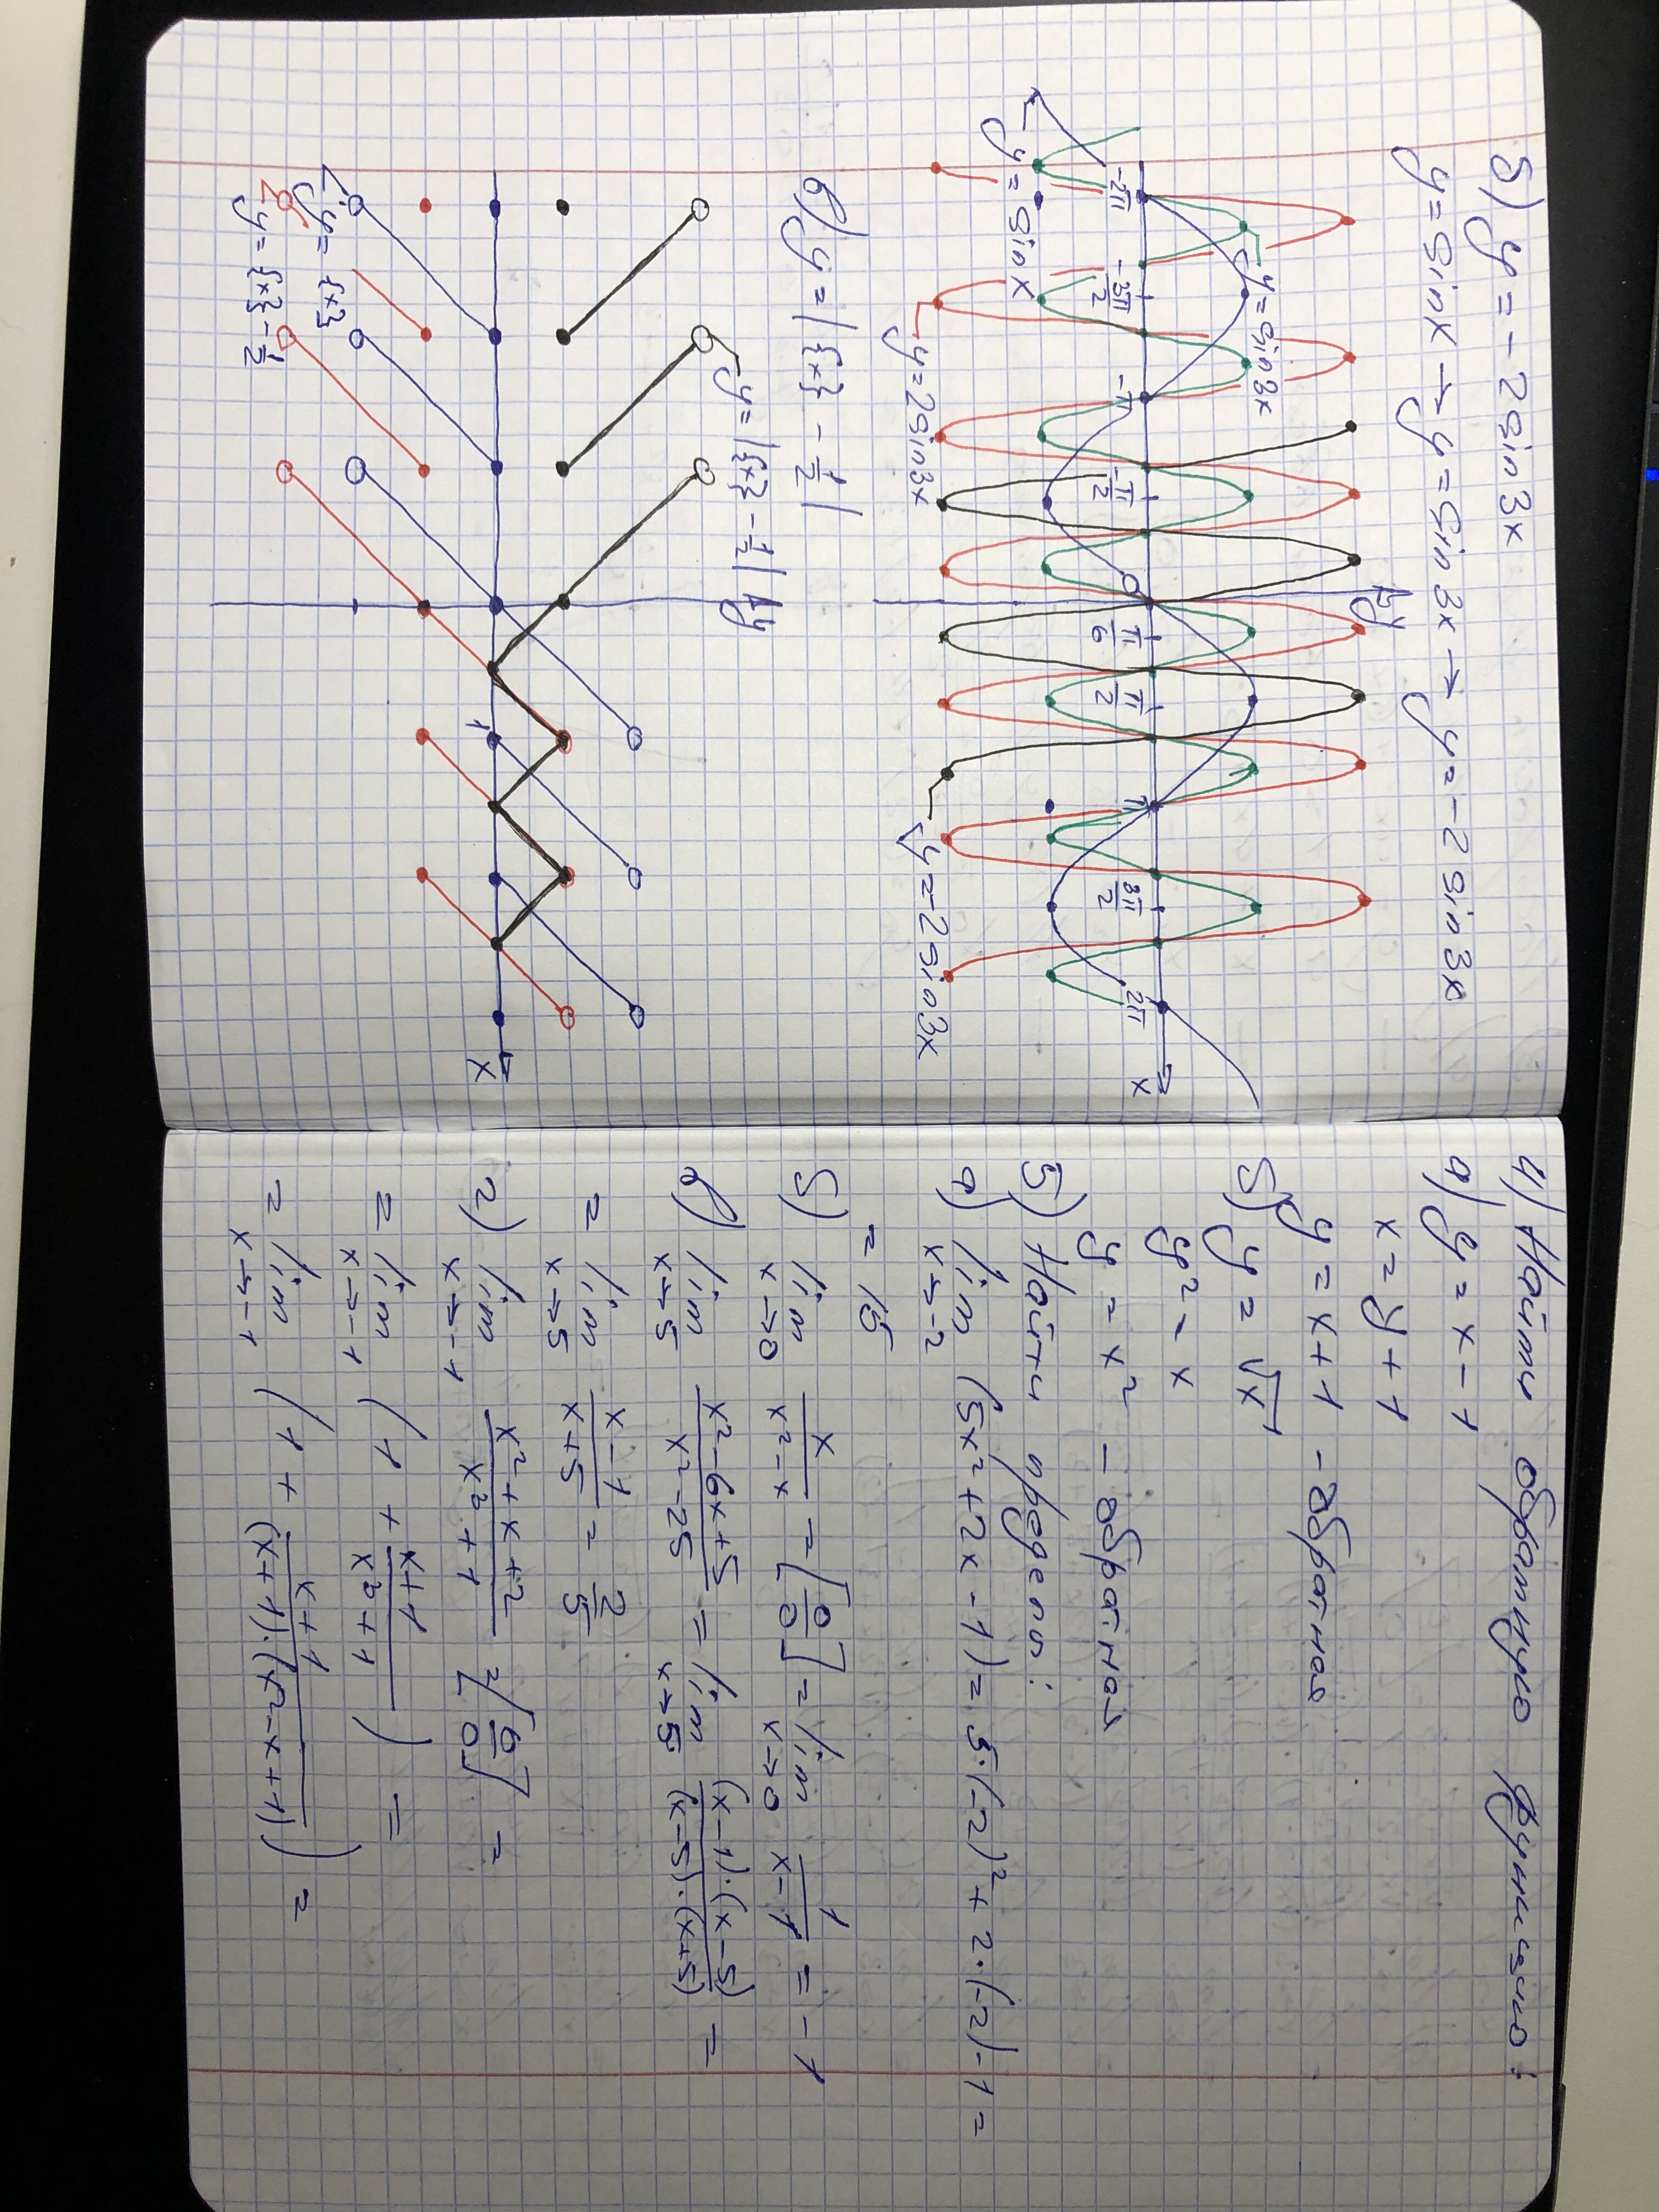 б) y = - 2 sin 3x
y = sin x → y = sin 3x → y = - 2 sin 3x
y
y = sin 3x
-2π -3π/2 -π -π/2 π/6 π/2 π 3π/2 2π x
y = sin x
y = 2 sin 3x
y = -2 sin 3x
в) y = | {x} - 1/2 |
y = |{x} - 1/2|
y
1
x
y = {x}
y = {x} - 1/2
4) Найти обратную функцию:
а) y = x - 1
x = y + 1
y = x + 1 - обратная
б) y = √x
y² = x
y = x² - обратная
5) Найти предел:
а) lim x→-2 (5x² + 2x - 1) = 5·(-2)² + 2·(-2) - 1 =
= 15
б) lim x→0 x/(x² - x) = [0/0] = lim x→0 1/(x - 1) = -1
в) lim x→5 (x² - 6x + 5)/(x² - 25) = lim x→5 ((x - 1)·(x - 5))/((x - 5)·(x + 5)) =
= lim x→5 (x - 1)/(x + 5) = 2/5
г) lim x→-1 (x² + x + 2)/(x³ + 1) = [0/0] =
= lim x→-1 (1 + (x + 1)/(x³ + 1)) =
= lim x→-1 (1 + (x + 1)/((x + 1)·(x² - x + 1))) =